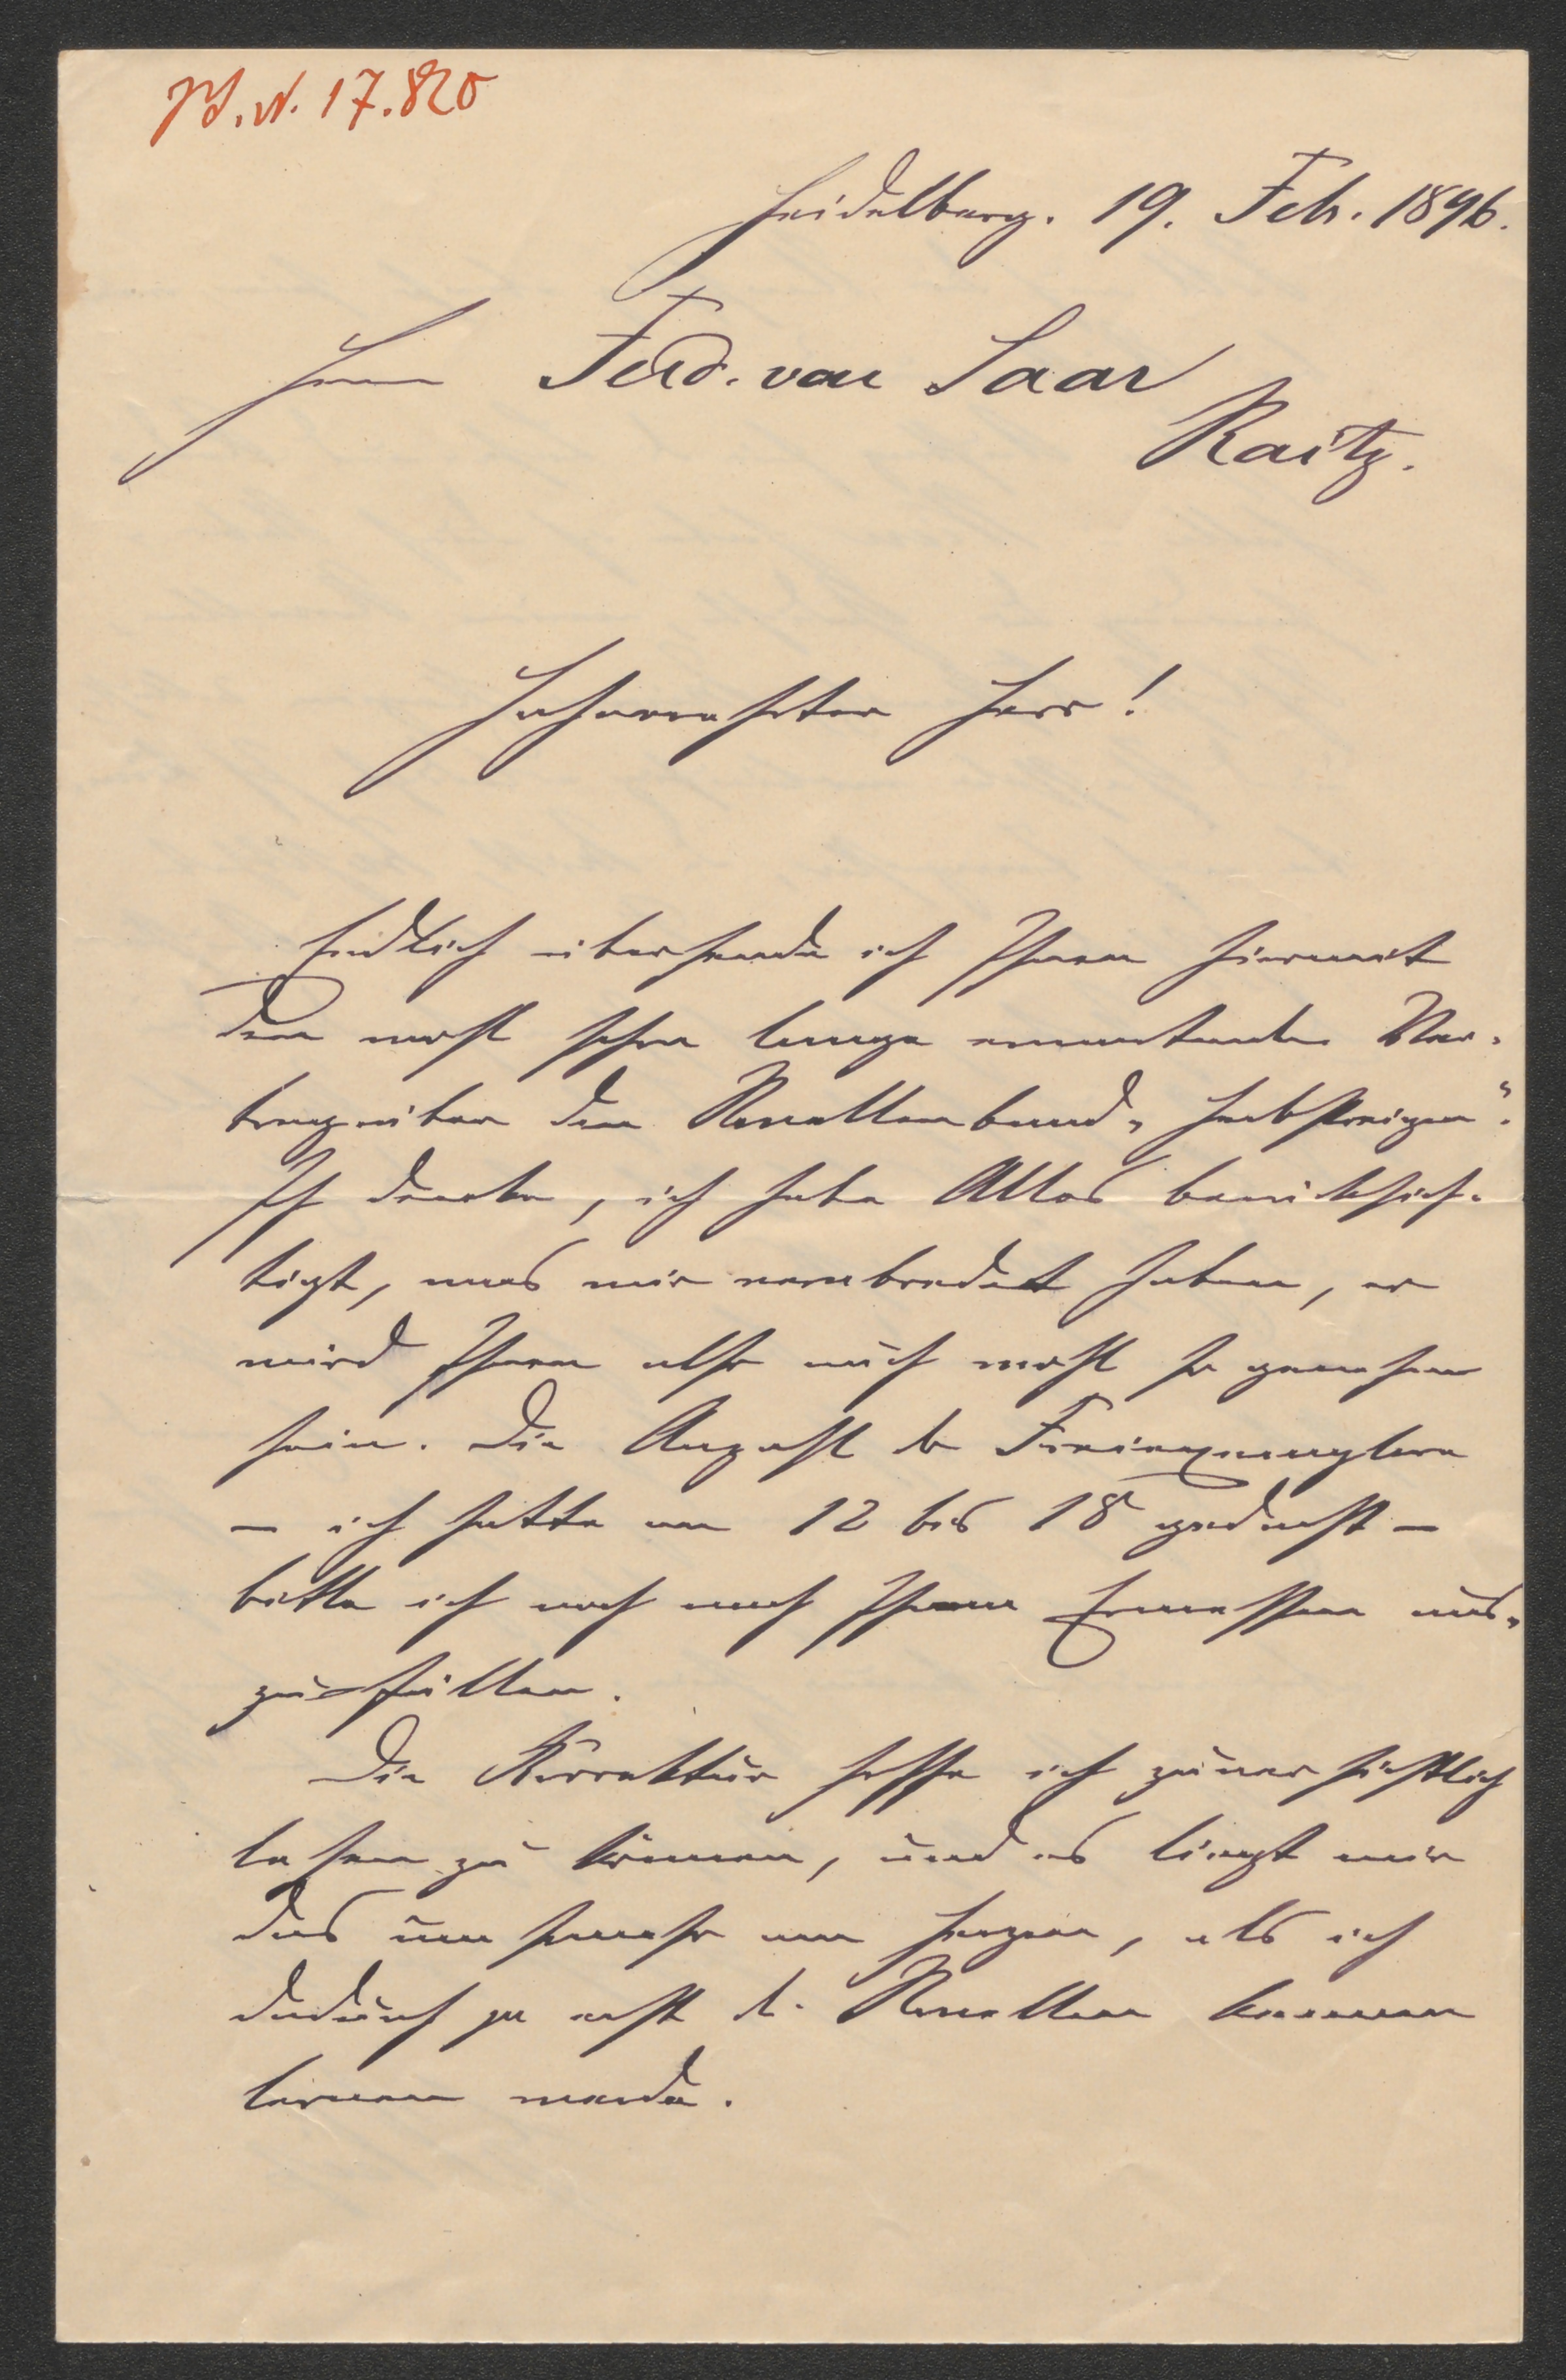 J.N. 17.820
Heidelberg. 19. Feb. 1896.
Herrn Ferd. von Saar
Raitz.
Hochverehrter Herr!
Endlich übersende ich Ihnen hiermit
den wohl schon lange erwarteten Ver-
trag über den Novellenband „Herbstreigen".
Ich denke, ich habe Alles berücksich-
tigt, was wir verabredet haben, er
wird Ihnen also auch wohl so genehm
sein. Die Anzahl der Freiexemplare
– ich hatte an 12 bis 18 gedacht –
bitte ich noch nach Ihrem Ermessen aus-
zufüllen.
Die Korrektur hoffe ich zuversichtlich
lesen zu können, und es liegt mir
das um so mehr am Herzen, als ich
dadurch ja erst d. Novellen kennen
lernen werde.